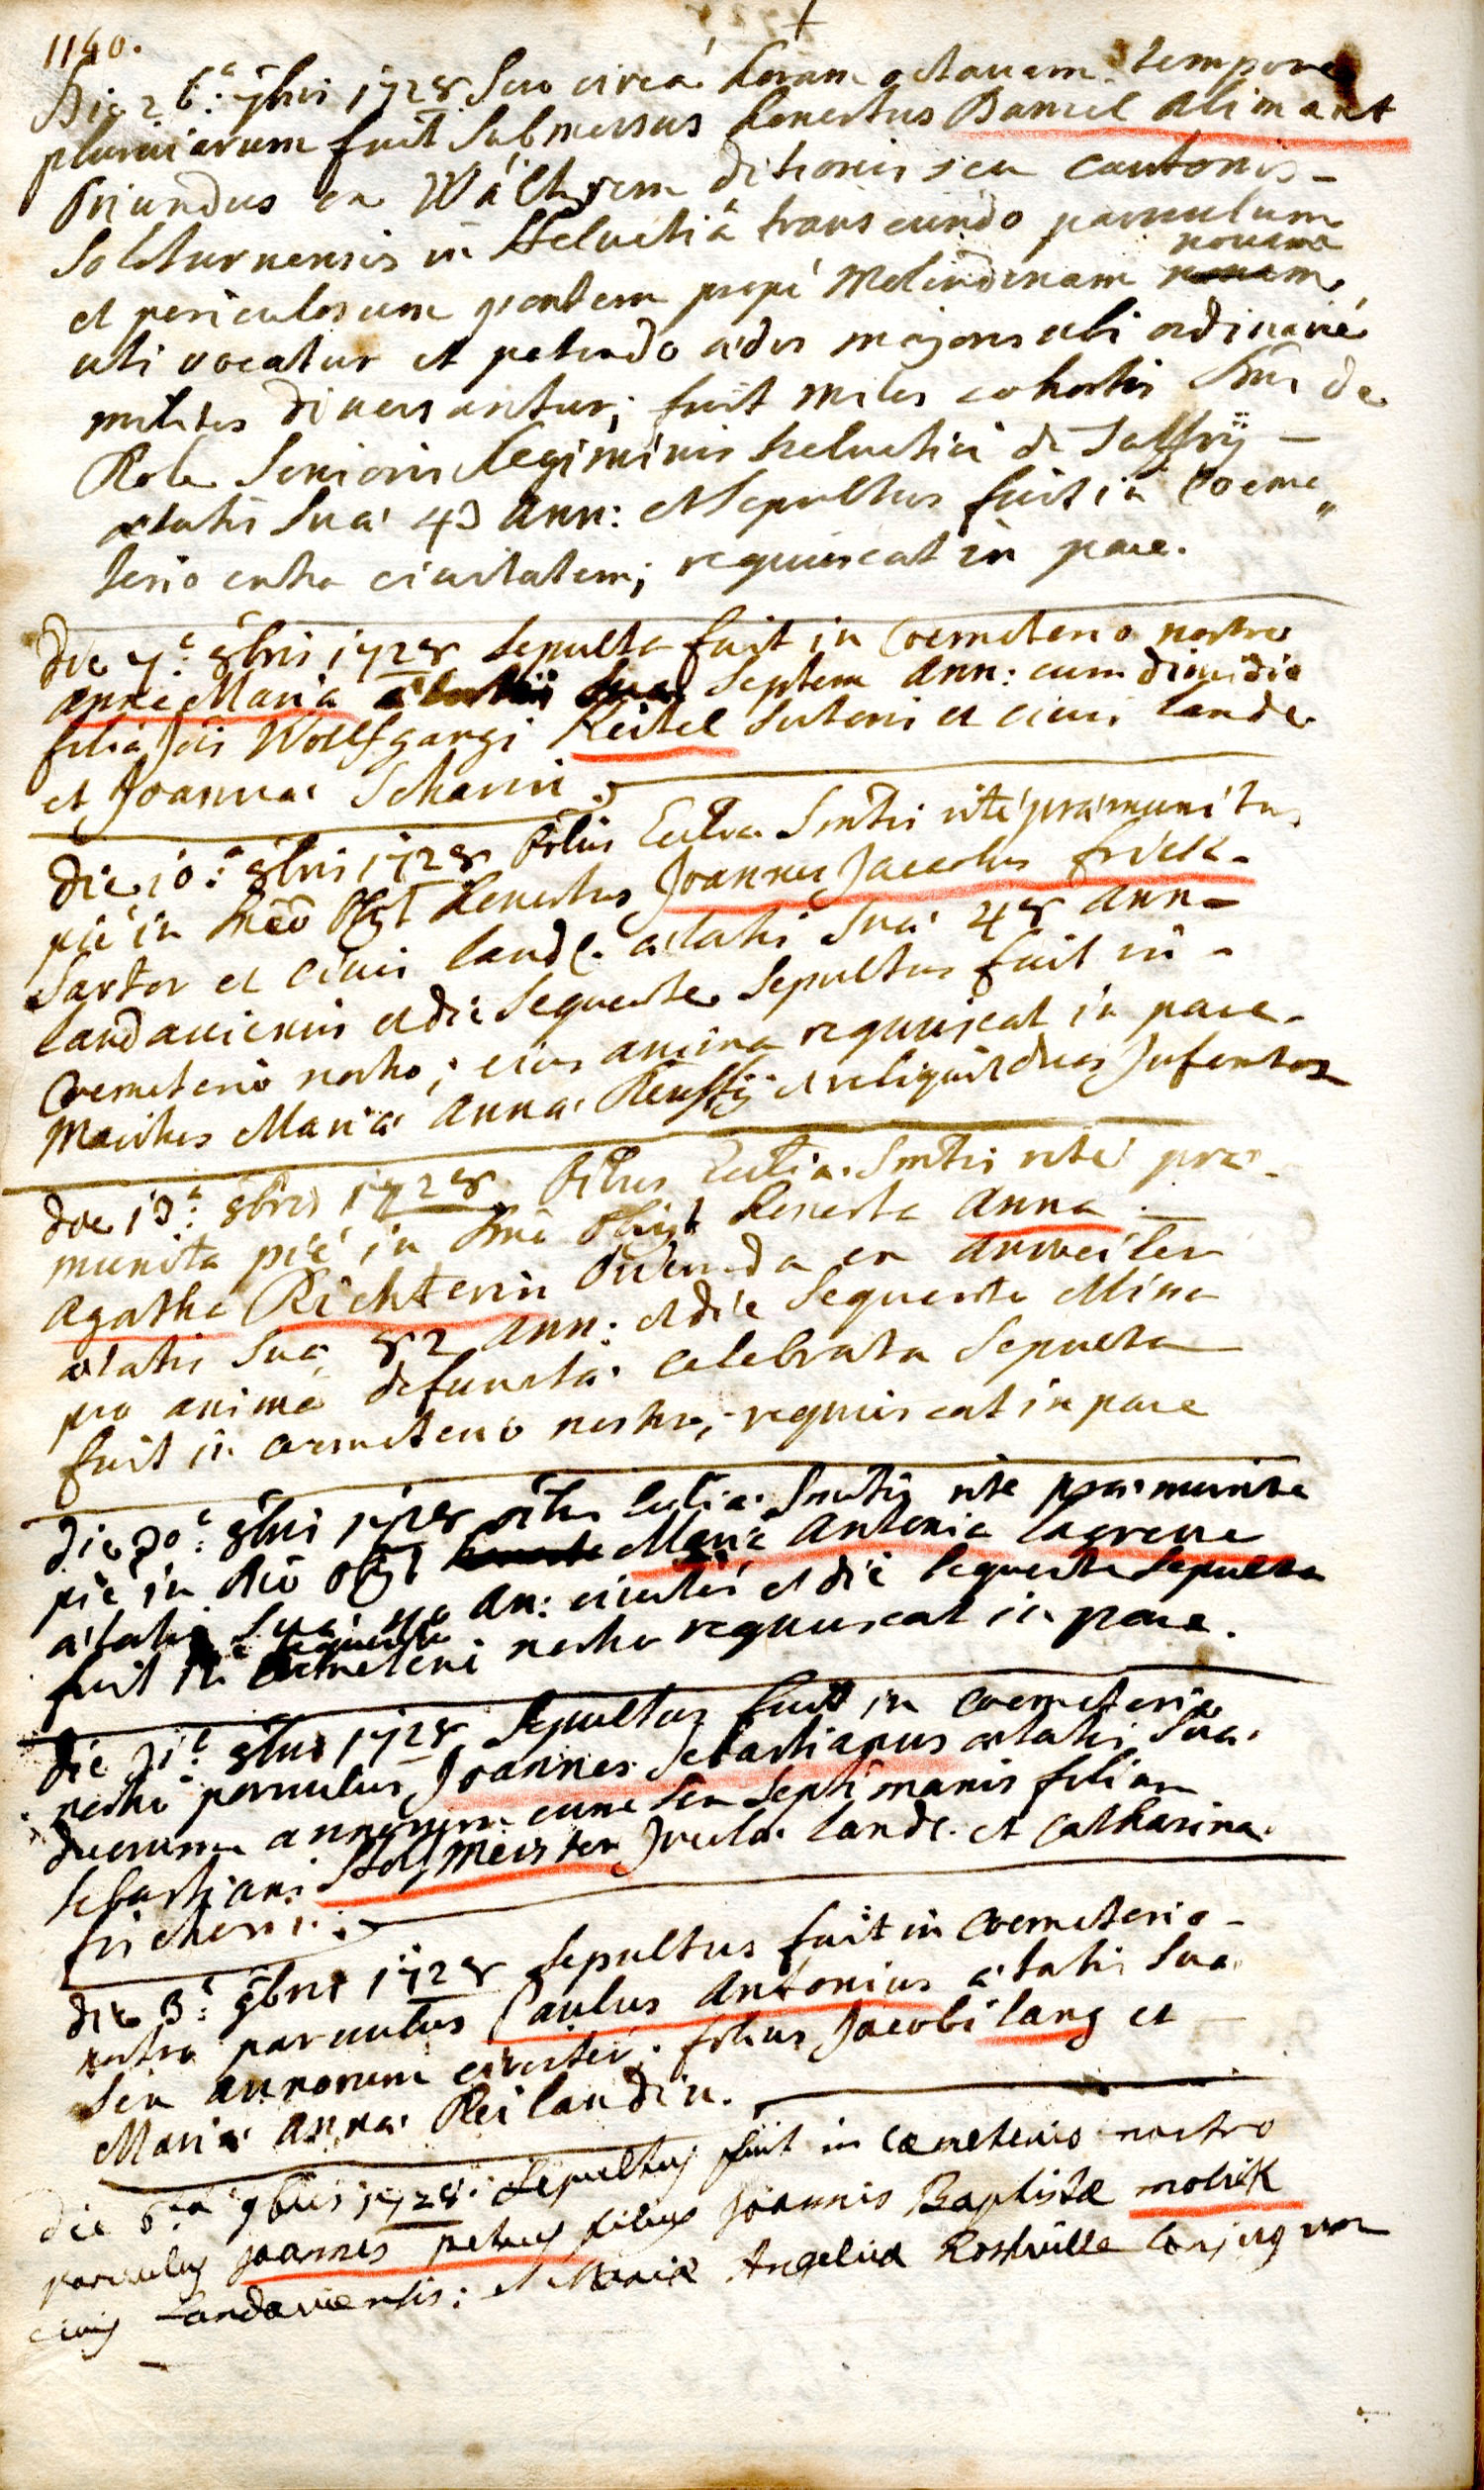 1140.
Die 26ª: 7bris 1728 Sero circa horam octavam tempore
pluviarum fuit Submersus honestus Daniel Alimant
Oriundus ex ditionis seu cantonis -
Soloturnensis in Helvetiâ transeundo parvulum
et periculosum pontem propé Molendinam novam
uti vocatur et petendo ædes majores ubi ordinarié
milites diversantur; fuit miles cohortis Dni de
Role Senioris Regiminis helvetici de
ætatis Suæ 43 Ann: et Sepultus fuit in Coeme„
terio extra civitatem; requiescat in pace.
die 7ª: 8bris 1728 Sepulta fuit in Coemeterio nostro
Anna Maria Septem Ann: cum dimidio
filia Jois Wolffgangi Keitel Sutoris et civis Landæ
et Joannæ Scharin
die 10ª: 8bris 1728 Oibus Ecclæ Smtis rité præmunitus
pié in Dno Obijt honestus Joannes Jacobus frick -
Sartor et civis Land. ætatis Suæ 48 Ann -
Landaviensis et die Sequente Sepultus fuit in -
Coemeterio nostro; eius anima requiescat in pace -
Maritus Mariæ Annæ et reliquit duos Infantes
die 13ª: 8bris 1728 Oibus Ecclia Smtis rité præ -
munita pié in Dno Obijt honesta Anna -
Agatha Richterin Oriunda ex Anweiler
ætatis Suæ 82 Ann: et die Sequente Missa
pro anima defunctæ celebrata Sepulta
fuit in coemeterio nostro; requiescat in pace
die 30ª: 8bris 1728 oibus Ecclia Smtis rite præmunita
pié in Dno Obijt Maria Antonia Lagrene
ætatis Suæ An: circiter et die Sequente Sepulta
fuit in coemeterio nostro requiescat in pace.
die 31ª: 8bris 1728 Sepultus fuit in coemeterio
nostro parvulus Joannes Sebastianus ætatis Suæ
duorum annorum cum Sex Septimanis filius
Sebastiani Hoffmeister Incolæ Land. et Catharinæ
fricherin
die 3ª: 9bris 1728 Sepultus fuit in coemeterio -
nostro parvulus Paulus Antonius ætatis Suæ
Sex annorum circiter filius Jacobi Lang et
Mariæ Annæ Reilandin.
die 6ta 9bris 1728. Sepultus fuit in cæmeterio nostro
parvulus joannes petrus filius Joannis Baptistæ molick
civis Landaviensis; et Mariæ Angelicæ conjugum